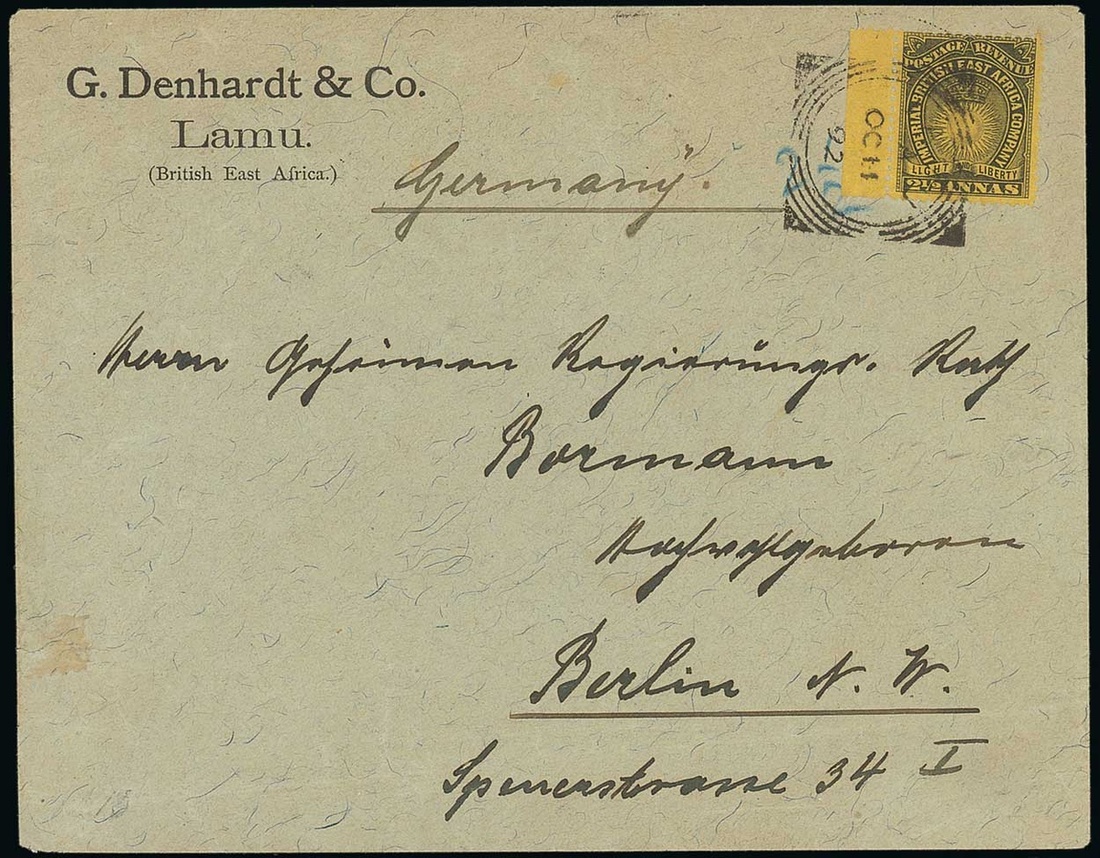 G. Denhardt & Co.
Lamu.
(British East Africa.)
Germany.
POSTAGE REVENUE
IMPERIAL BRITISH EAST AFRICA COMPANY
LIGHT LIBERTY
2½ ANNAS
OC 11
92
Herrn Geheimen Regierungs. Rath
Bormann
Hochwohlgeboren
Berlin N. W.
Spenerstrasse 34 I